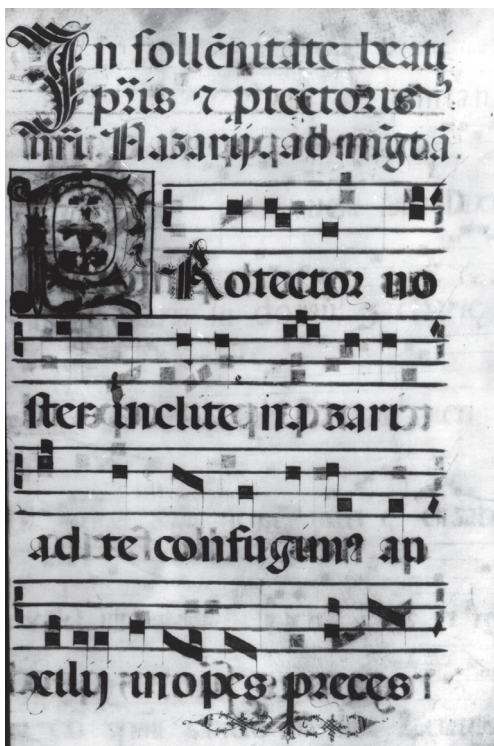 In sollēnitate beati
pr̄is ⁊ ptectoris
nr̄i Nazarij, ad mḡtā.
PRotector no
ster inclite nazari
ad te confugimꝰ au
xilij inopes preces